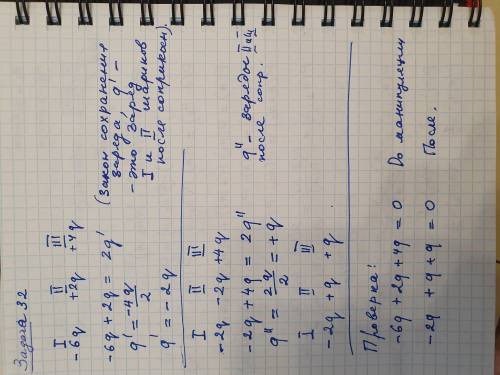 Задача 32
I II III
-6q +2q +4q
-6q + 2q = 2q' (Закон сохранения
заряда, q' –
q' = -4q/2 - это заряд
I и II шариков
q' = -2q после соприкосн).
I II III
-2q -2q +4q
-2q + 4q = 2q'' q'' - заряды II и III
после сопр.
q'' = 2q/2 = +q
I II III
-2q +q +q.
Проверка:
-6q + 2q + 4q = 0 До манипуляции
-2q + q + q = 0 После.